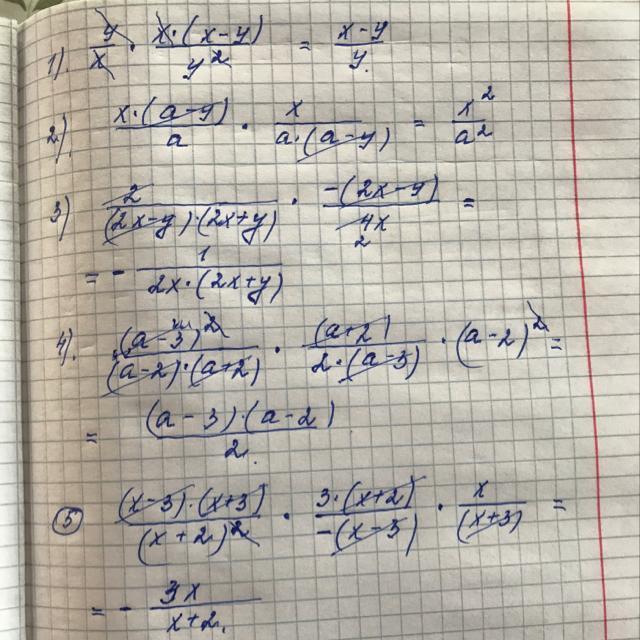 1) y/x · x·(x-y)/y² = x-y/y.
2) x·(a-y)/a · x/a·(a-y) = x²/a²
3) 2/(2x-y)·(2x+y) · -(2x-y)/4x 2 =
= - 1/2x·(2x+y)
4). (a-3)²/(a-2)·(a+2) · (a+2)/2·(a-3) · (a-2)² =
= (a-3)·(a-2)/2.
5 (x-3)·(x+3)/(x+2)² · 3·(x+2)/-(x-3) · x/(x+3) =
= - 3x/x+2.